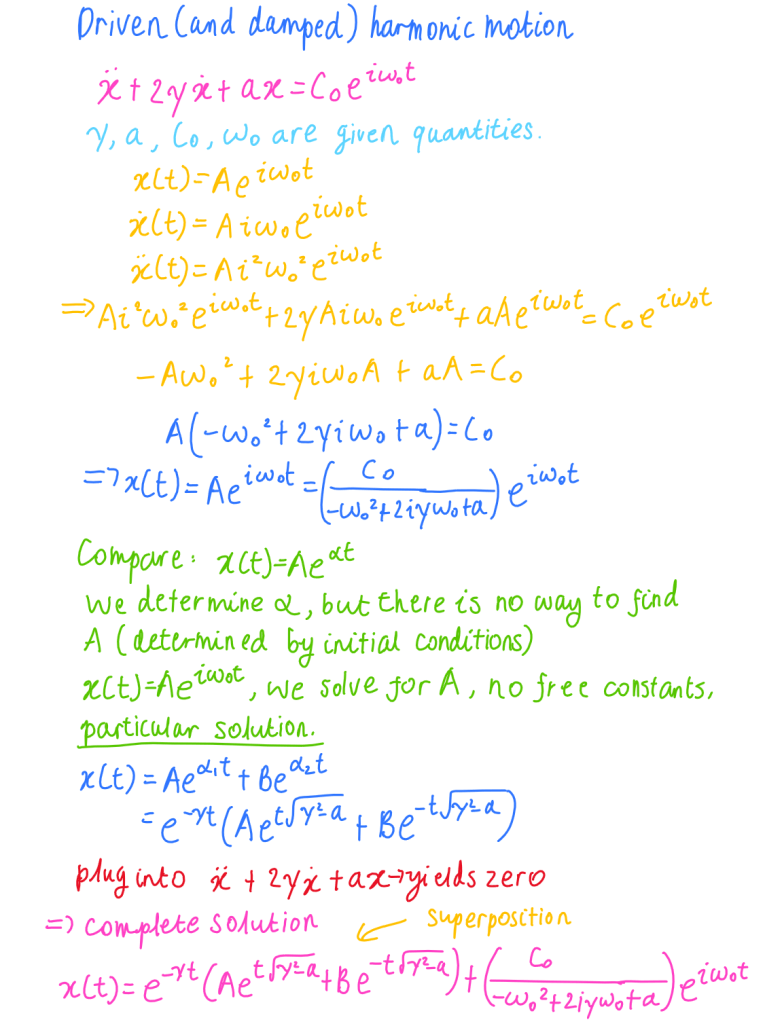 Driven (and damped) harmonic motion
ẍ + 2γẋ + ax = C₀e^{iω₀t}
γ, a, C₀, ω₀ are given quantities.
x(t) = Ae^{iω₀t}
ẋ(t) = Aiω₀e^{iω₀t}
ẍ(t) = Ai²ω₀²e^{iω₀t}
⇒ Ai²ω₀²e^{iω₀t} + 2γAiω₀e^{iω₀t} + aAe^{iω₀t} = C₀e^{iω₀t}
-Aω₀² + 2γiω₀A + aA = C₀
A(-ω₀² + 2γiω₀ + a) = C₀
⇒ x(t) = Ae^{iω₀t} = (C₀/(-ω₀² + 2iγω₀ + a)) e^{iω₀t}
Compare: x(t) = Ae^{αt}
we determine α, but there is no way to find
A (determined by initial conditions)
x(t) = Ae^{iω₀t}, we solve for A, no free constants,
particular solution.
x(t) = Ae^{α₁t} + Be^{α₂t}
= e^{-γt}(Ae^{t√(γ²-a)} + Be^{-t√(γ²-a)})
plug into ẍ + 2γẋ + ax → yields zero
⇒ complete solution ← superposition
x(t) = e^{-γt}(Ae^{t√(γ²-a)} + Be^{-t√(γ²-a)}) + (C₀/(-ω₀² + 2iγω₀ + a)) e^{iω₀t}